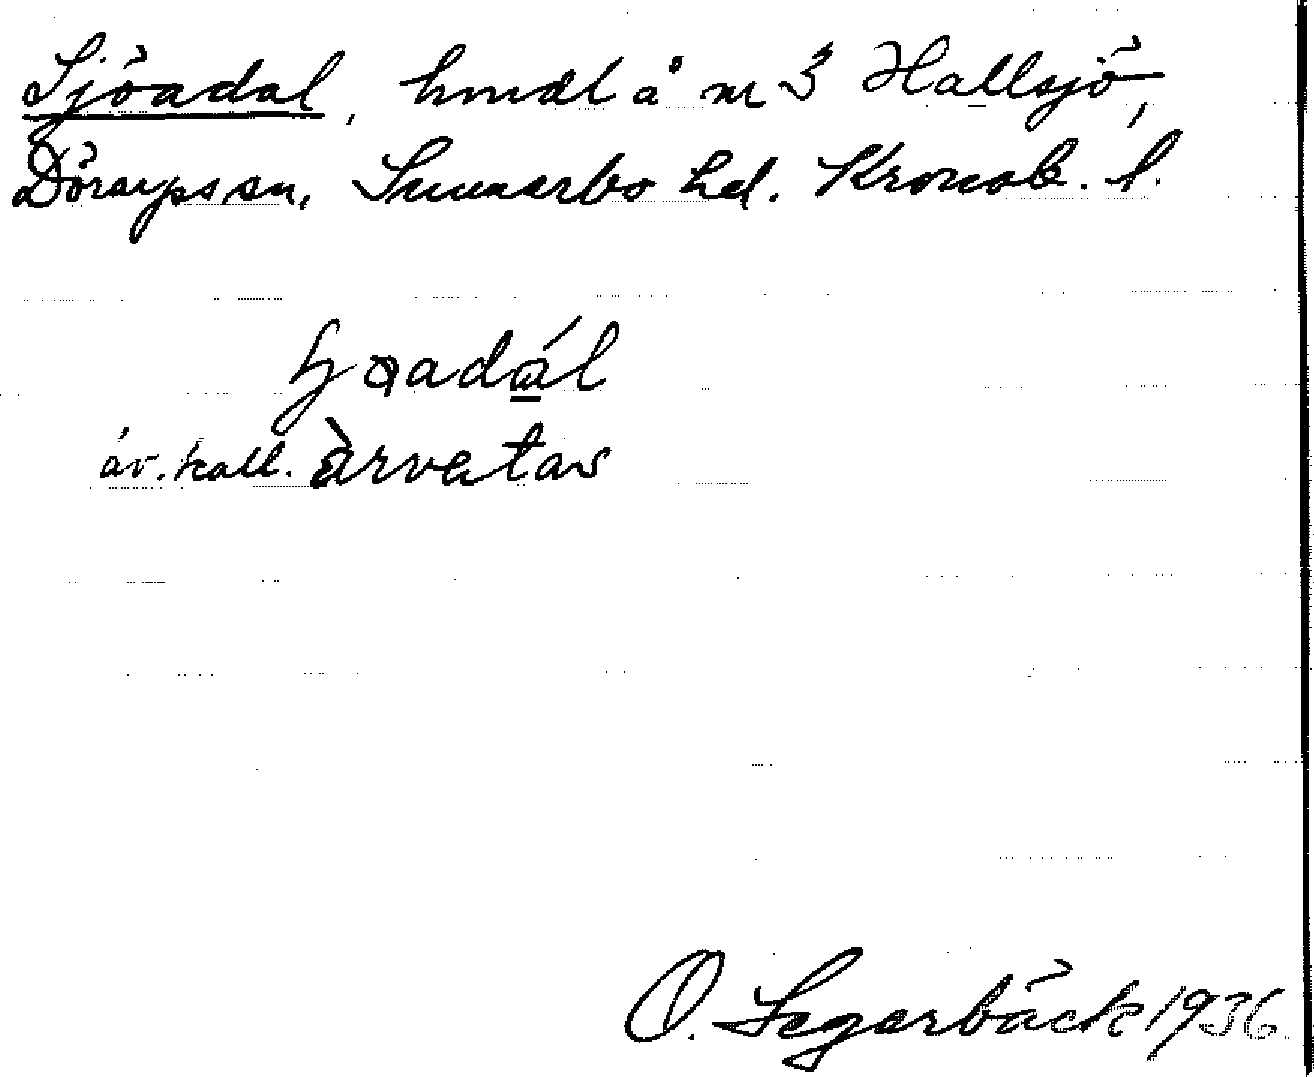 Sjöadal, hmdl å nr 3 Hallsjö,
Döraryps sn, Sunnerbo hd. Kronob. l.
äv. kall. àrvetas
O. Segerbäck 1936.